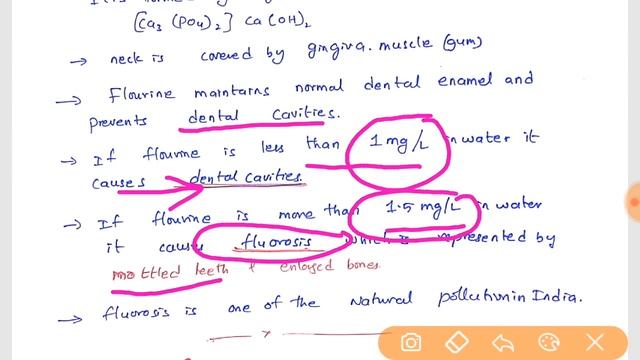 [Ca₃ (PO₄)₂] Ca(OH)₂
→ neck is covered by gingiva. muscle (gum)
→ Flourine maintains normal dental enamel and
prevents dental cavities.
→ If flourine is less than 1 mg/L in water it
causes dental cavities
→ If flourine is more than 1.5 mg/L in water
it causes fluorosis which is represented by
mottled teeth & enlarged bones.
→ fluorosis is one of the Natural pollution in India.
x